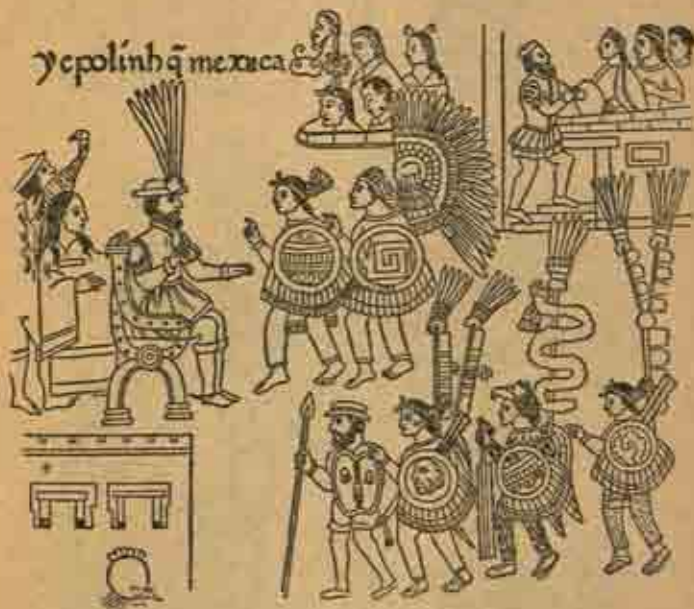 ycpolinh q̃ mexica